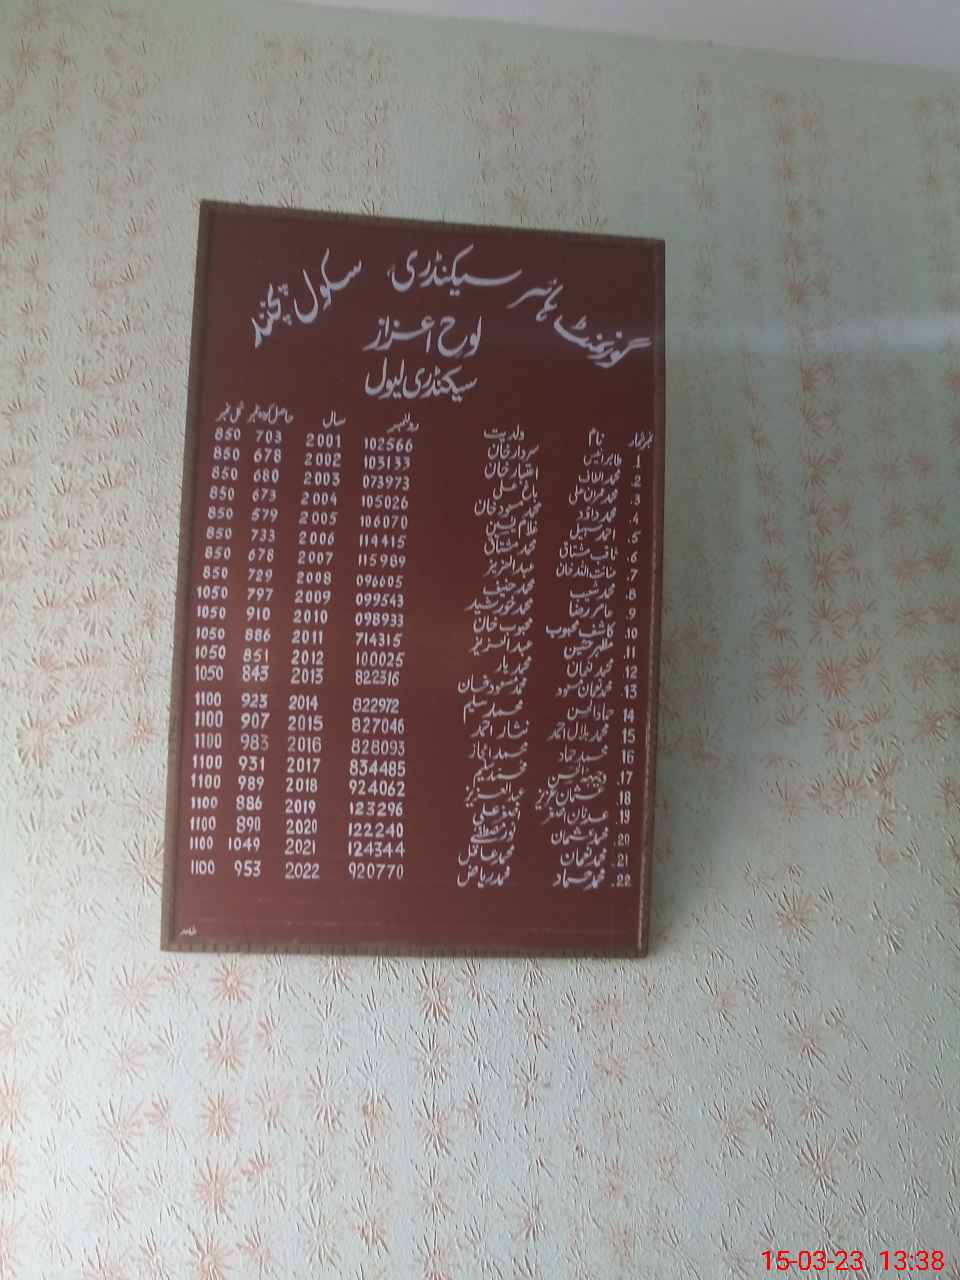 گورنمنٹ ہائر سیکنڈری سکول پچنند
لوح اعزاز
سیکنڈری لیول
نمبرشمار نام ولدیت رولنمبر سال حاصل کردہ نمبر کل نمبر
1. سردار خان 102566 2001 703 850
2. محمد الطاف افتخار خان 103133 2002 678 850
3. محمد عمران علی باغ علی 073973 2003 680 850
4. محمد داؤد محمد مسعود خان 105026 2004 673 850
5. احمد سہیل غلام یٰسین 106070 2005 579 850
6. ثاقب مشتاق محمد مشتاق 114415 2006 733 850
7. عبدالعزیز 115989 2007 678 850
8. محمد شعیب محمد حنیف 096605 2008 729 850
9. عامر رضا محمد خورشید 099543 2009 797 1050
10. کاشف محبوب محبوب خان 098933 2010 910 1050
11. مظہر حسین عبدالعزیز 714315 2011 886 1050
12. محمد نعمان محمد یار 100025 2012 851 1050
13. محمد نعمان مسعود محمد مسعود خان 822316 2013 843 1050
14 حماد الحسن محمد سلیم 822972 2014 923 1100
15 محمد بلال احمد نثار احمد 827046 2015 907 1100
16 محمد حماد محمد اعجاز 828093 2016 983 1100
17. الحسن محمد سلیم 834485 2017 931 1100
18. عثمان عزیز عبدالعزیز 924062 2018 989 1100
19. عدنان اصغر اصغر علی 123296 2019 886 1100
20. محمد عثمان 122240 2020 890 1100
21. محمد نعمان محمد عاقل 124344 2021 1049 1100
22. محمد حماد محمد ریاض 920770 2022 953 1100
15-03-23 13:38